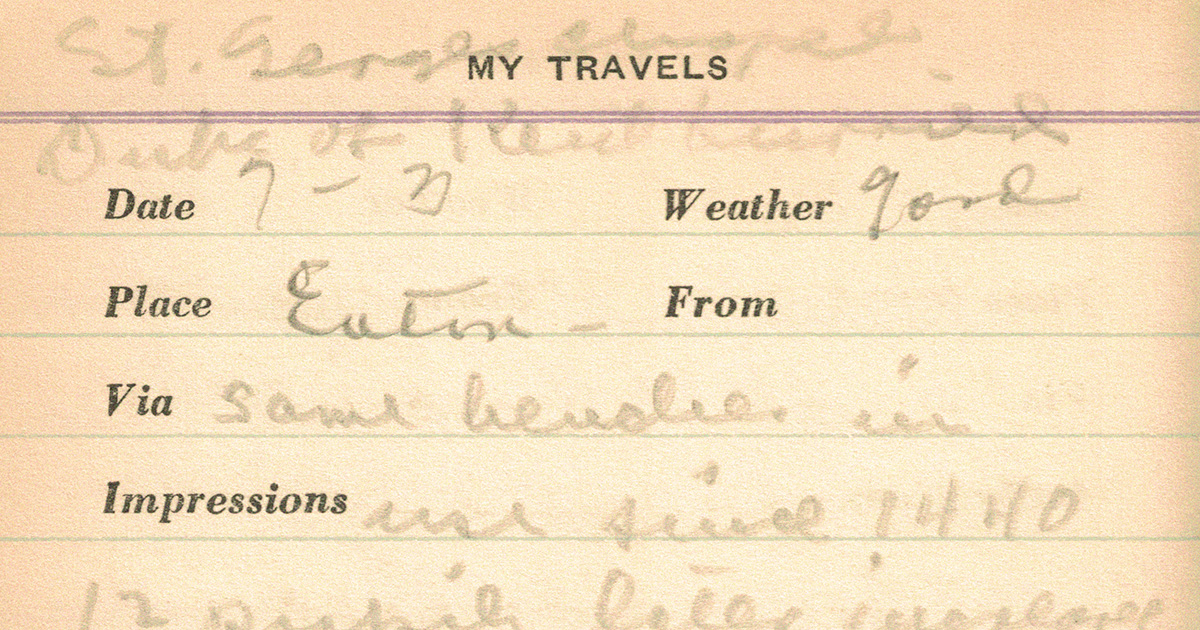 St. Georges chapel.
MY TRAVELS
Duke of Kent buried
Date 7 - Weather good
Place Eaton - From
Via Same benches in
Impressions use since 1440
12